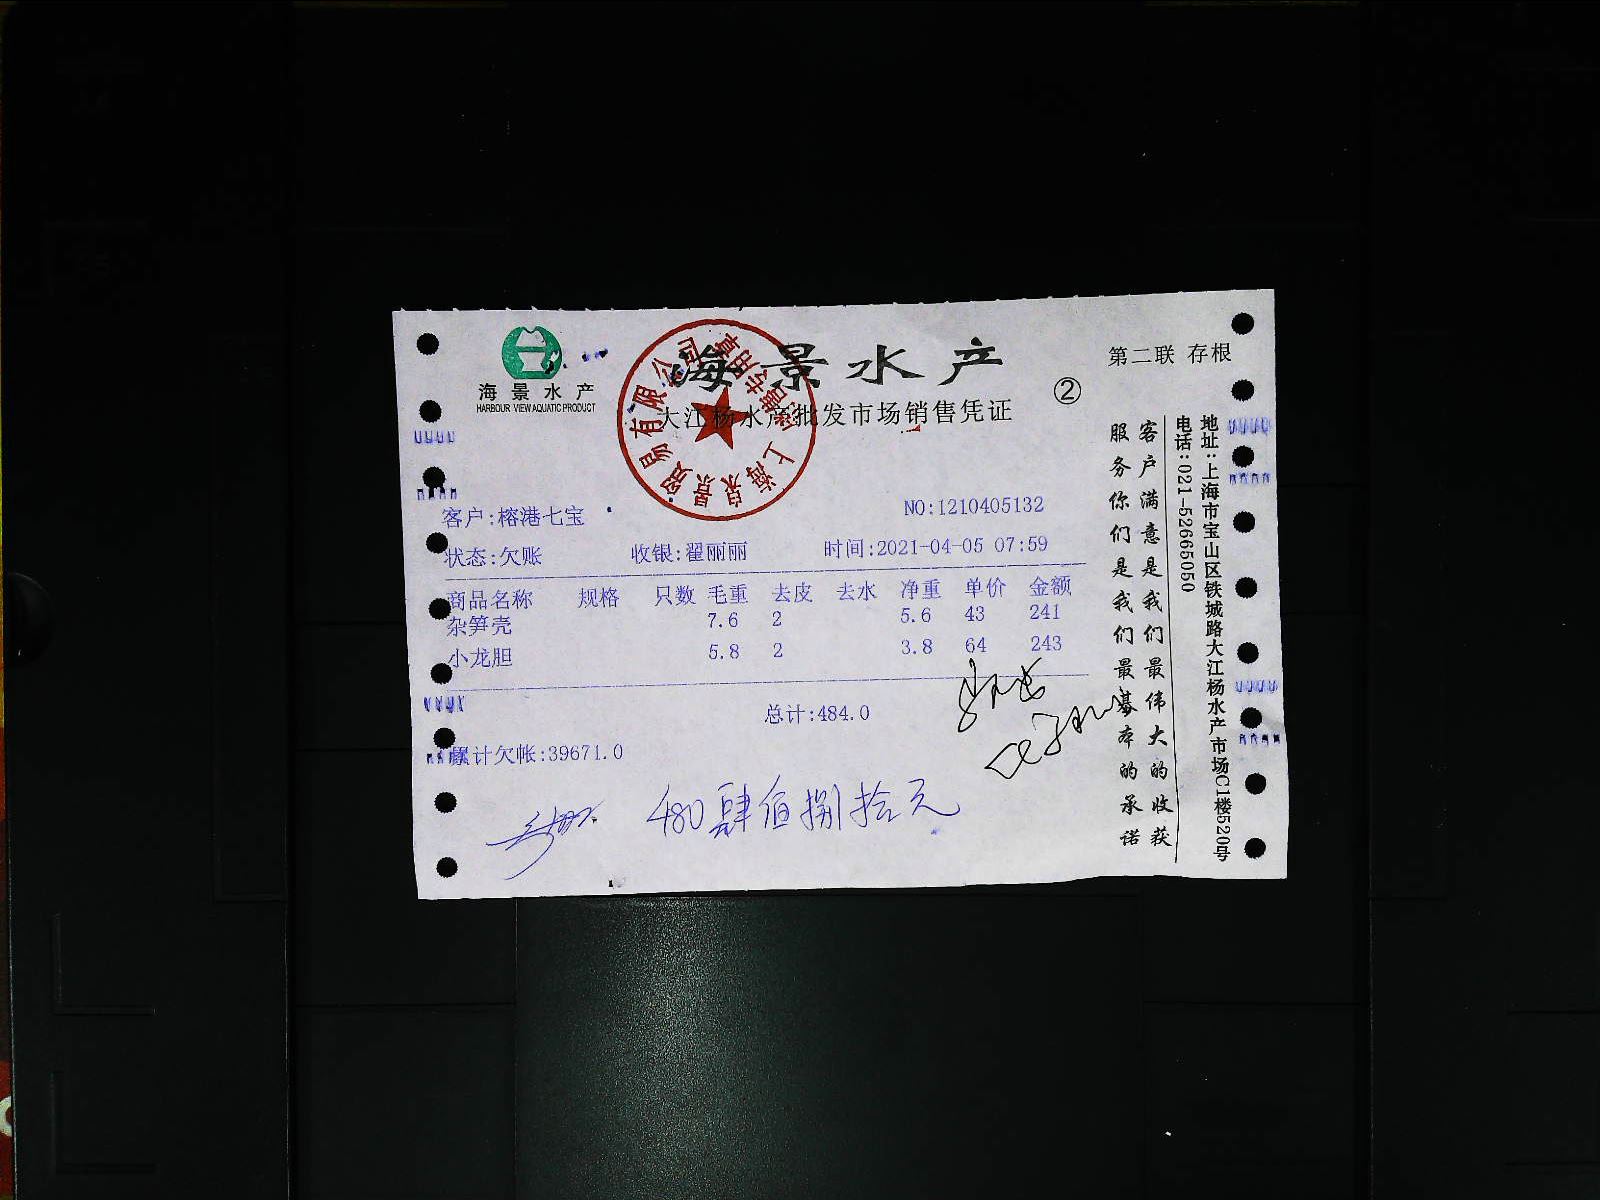 海景水产
HARBOUR VIEW AQUATIC PRODUCT
海景水产
大江杨水产批发市场销售凭证
②
第二联 存根
客户:榕港七宝
NO:1210405132
状态:欠账 收银:翟丽丽 时间:2021-04-05 07:59
商品名称 规格 只数 毛重 去皮 去水 净重 单价 金额
杂笋壳 7.6 2 5.6 43 241
小龙胆 5.8 2 3.8 64 243
总计:484.0
累计欠帐:39671.0
480肆佰捌拾元
客户满意是我们最伟大的收获
服务你们是我们最基本的承诺
地址:上海市宝山区铁城路大江杨水产市场C1楼520号
电话:021-52665050